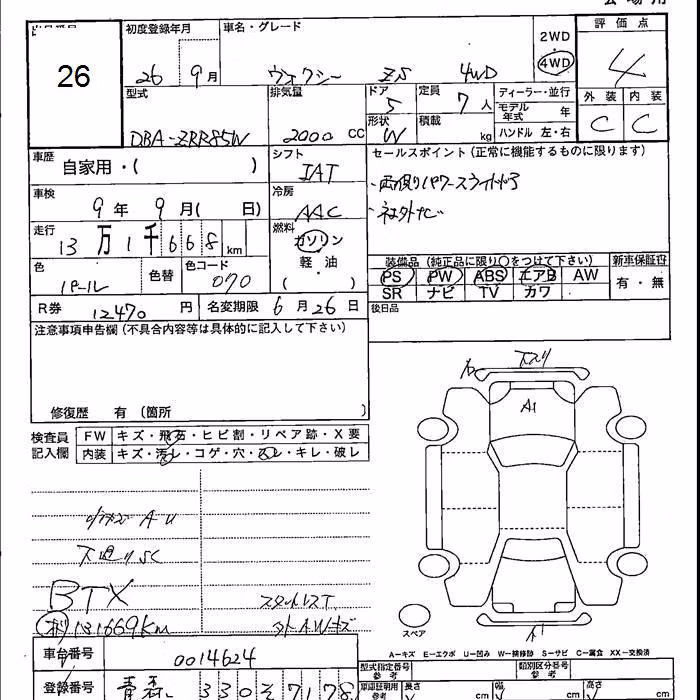 26
初度登録年月 26 9月
車名・グレード ヴォクシー ZS 4WD
2WD 4WD
評価点 4
外装 内装
C C
型式 DBA-ZRR85W
排気量 2000 CC
ドア 5 形状 W
定員 7人 積載 kg
ディーラー・並行
モデル年式 年
ハンドル 左・右
車歴 自家用・( )
シフト IAT
セールスポイント(正常に機能するものに限ります)
・両側パワースライドドア
・社外ナビ
車検 9年9月( 日)
冷房 AAC
走行 13万1千668km
燃料 ガソリン 軽・油 ( )
色 パール 色替 色コード 070
装備品(純正品に限り○をつけて下さい)
PS PW ABS エアB AW
SR ナビ TV カワ
新車保証書 有・無
R券 12470円 名変期限 6月26日
後日品
注意事項申告欄(不具合内容等は具体的に記入して下さい)
修復歴 有(箇所 )
検査員記入欄
FW キズ・飛石・ヒビ割・リペア跡・X要
内装 キズ・汚レ・コゲ・穴・スレ・キレ・破レ
A1
下廻りSC
BTX
131669Km
外AWキズ
スペア
A=キズ E=エクボ U=凹み W=補修跡 S=サビ C=腐食 XX=交換済
車台番号 0014624
登録番号 青森 330 そ 7178
型式指定番号 参考
類別区分番号 参考
長さ cm 幅 cm 高さ cm